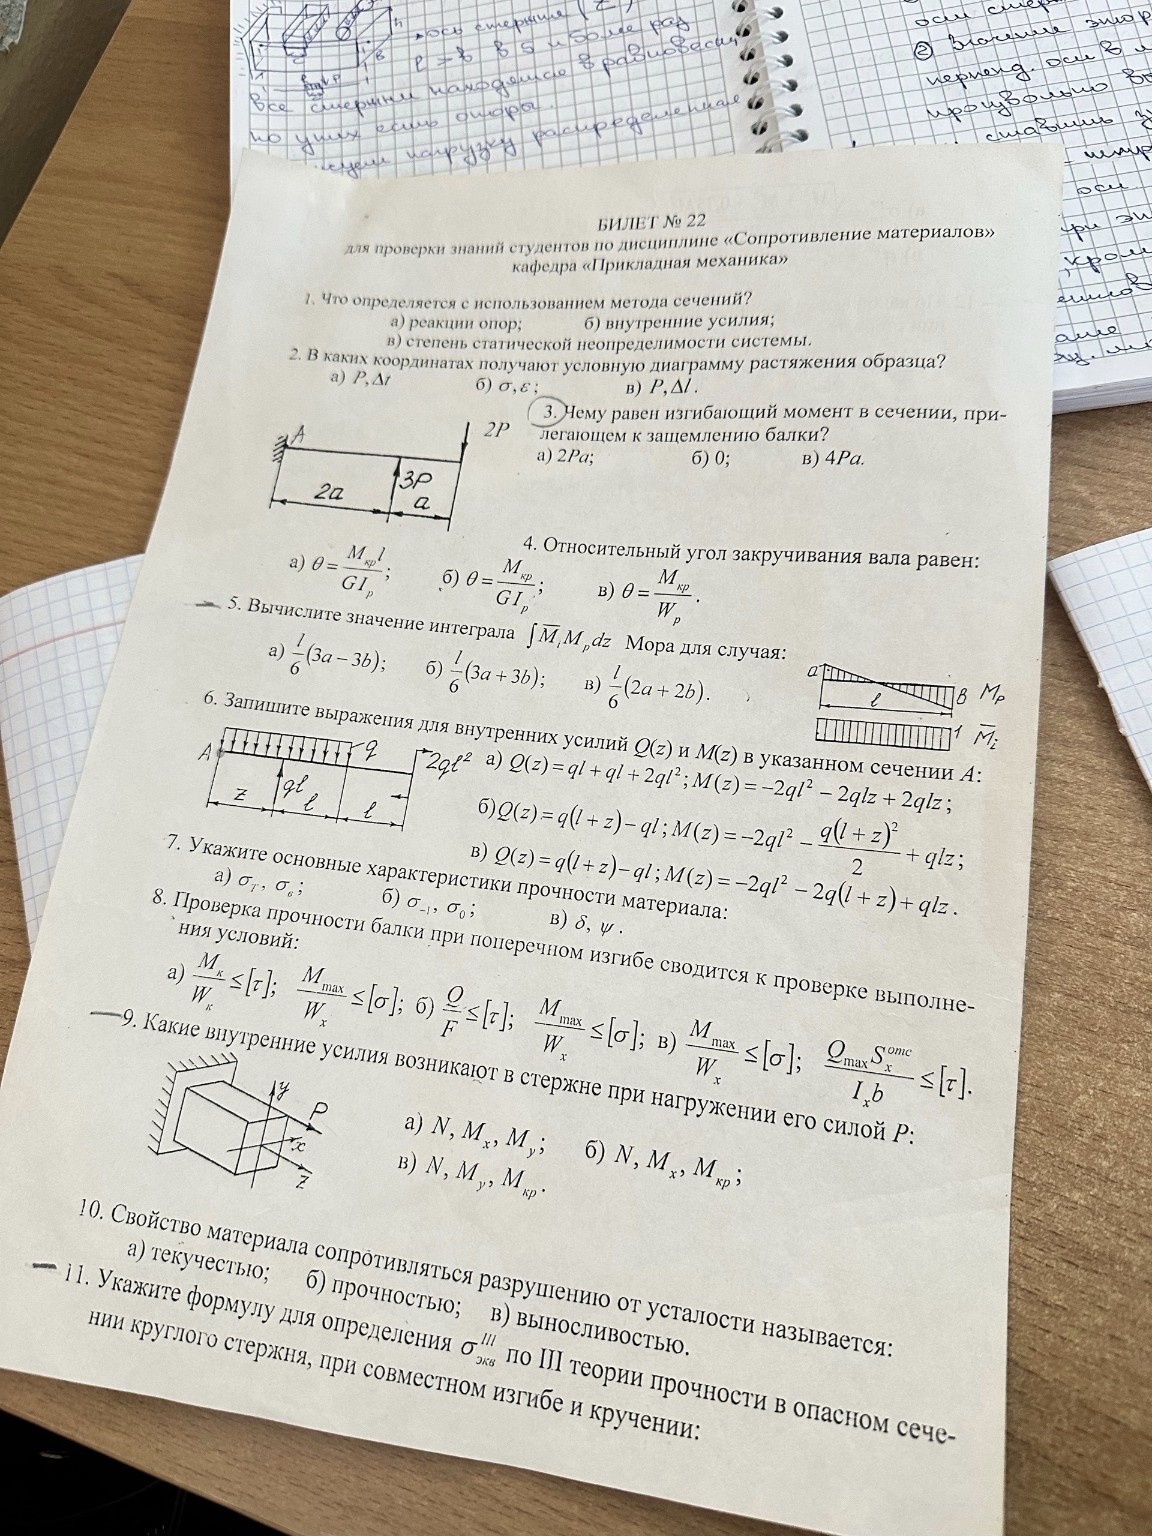 ось стержня (z)
l > b в 5 и более раз
все стержни находятся в равновесии,
но у них есть опоры.
нагрузку распределенная
БИЛЕТ № 22
для проверки знаний студентов по дисциплине «Сопротивление материалов»
кафедра «Прикладная механика»
1. Что определяется с использованием метода сечений?
а) реакции опор; б) внутренние усилия;
в) степень статической неопределимости системы.
2. В каких координатах получают условную диаграмму растяжения образца?
а) P, Δt б) σ, ε; в) P, Δl.
3. Чему равен изгибающий момент в сечении, при-
легающем к защемлению балки?
а) 2Pa; б) 0; в) 4Pa.
A 2P
3P
2a a
4. Относительный угол закручивания вала равен:
а) θ = M_кр l / GI_p; б) θ = M_кр / GI_p; в) θ = M_кр / W_p.
5. Вычислите значение интеграла ∫M̅_i M_p dz Мора для случая:
а) l/6 (3a − 3b); б) l/6 (3a + 3b); в) l/6 (2a + 2b).
a B M_P
l
1 M̅_i
6. Запишите выражения для внутренних усилий Q(z) и M(z) в указанном сечении A:
A q 2ql²
ql
z l l
а) Q(z) = ql + ql + 2ql²; M(z) = −2ql² − 2qlz + 2qlz;
б) Q(z) = q(l + z) − ql; M(z) = −2ql² − q(l + z)² / 2 + qlz;
в) Q(z) = q(l + z) − ql; M(z) = −2ql² − 2q(l + z) + qlz.
7. Укажите основные характеристики прочности материала:
а) σ_т, σ_в; б) σ_−1, σ_0; в) δ, ψ.
8. Проверка прочности балки при поперечном изгибе сводится к проверке выполне-
ния условий:
а) M_к / W_к ≤ [τ]; M_max / W_x ≤ [σ]; б) Q / F ≤ [τ]; M_max / W_x ≤ [σ]; в) M_max / W_x ≤ [σ]; Q_max S_x^отс / I_x b ≤ [τ].
9. Какие внутренние усилия возникают в стержне при нагружении его силой P:
y P
x
z
а) N, M_x, M_y; б) N, M_x, M_кр;
в) N, M_y, M_кр.
10. Свойство материала сопротивляться разрушению от усталости называется:
а) текучестью; б) прочностью; в) выносливостью.
11. Укажите формулу для определения σ_экв^III по III теории прочности в опасном сече-
нии круглого стержня, при совместном изгибе и кручении: